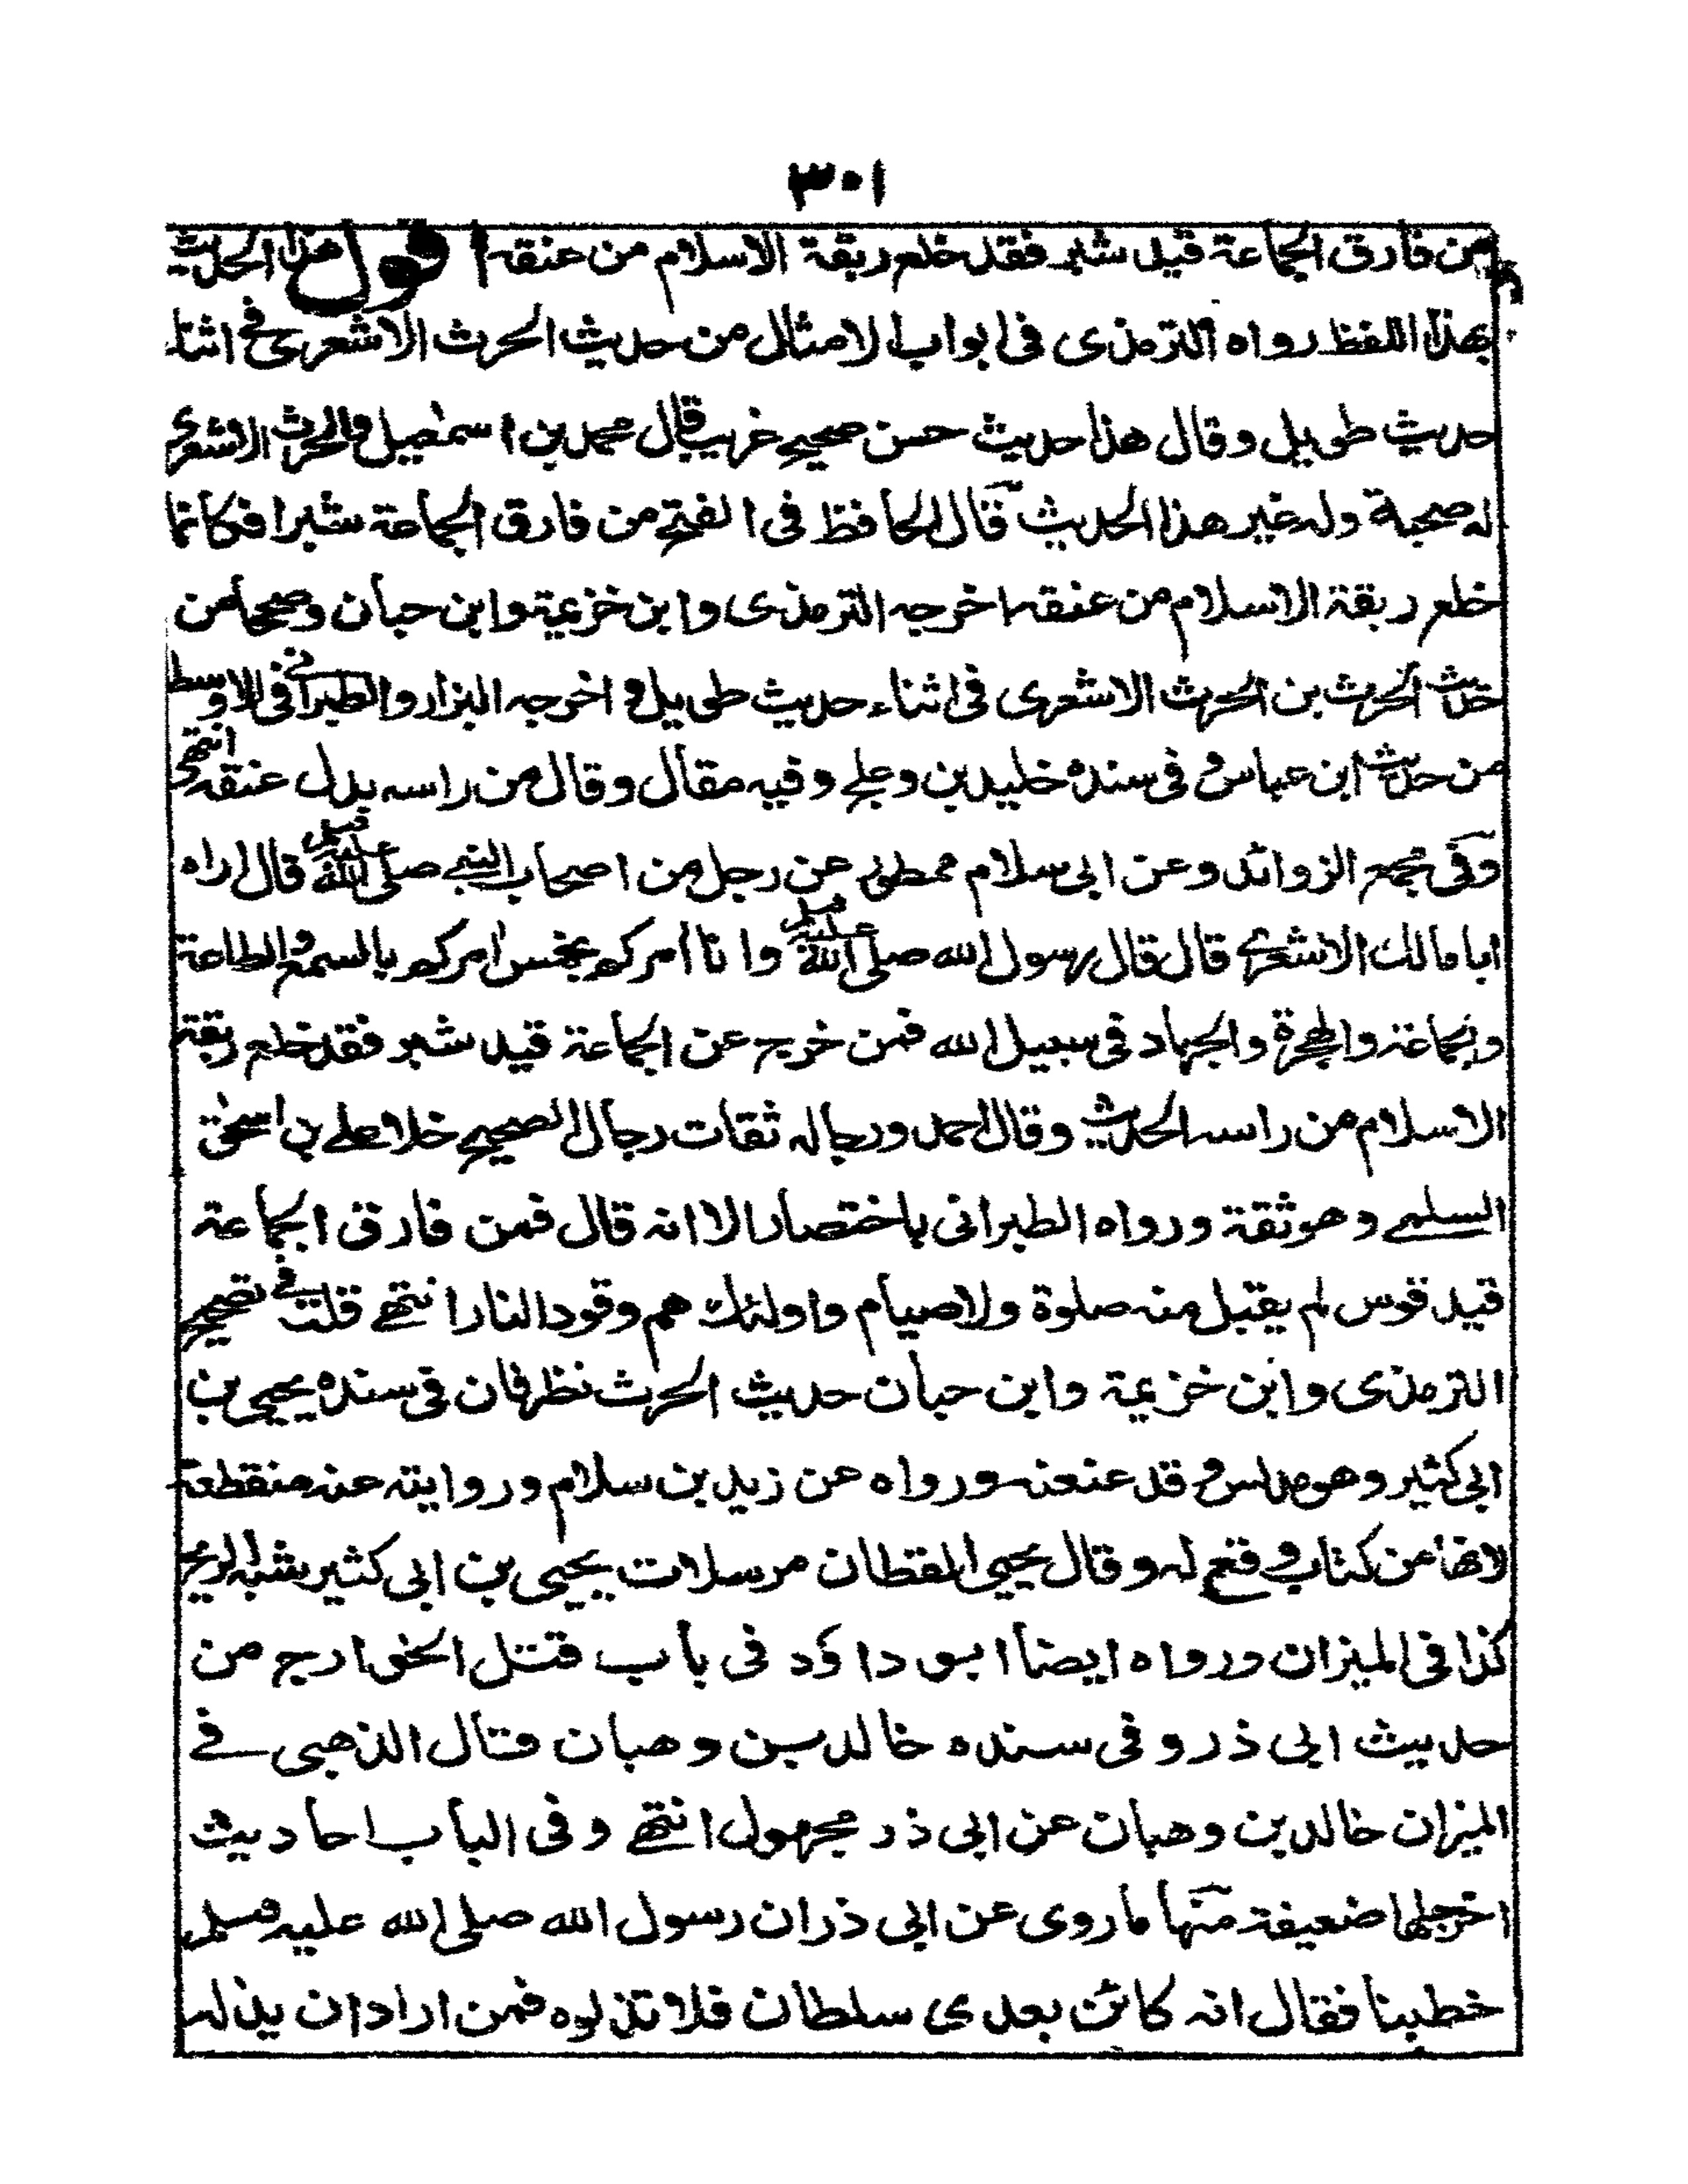 ٣٠١
من فارق الجماعة قيد شبر فقد خلع ربقة الاسلام من عنقه اقول هذا الحديث
بهذا اللفظ رواه الترمذى فى ابواب الامثال من حديث الحرث الاشعرى فى اثناء
حديث طويل وقال هذا حديث حسن صحيح غريب قال محمد بن اسمعيل والحرث الاشعرى
له صحبة وله غير هذا الحديث قال الحافظ فى الفتح من فارق الجماعة شبرا فكانما
خلع ربقة الاسلام من عنقه اخرجه الترمذى وابن خزيمة وابن حبان وصححاه من
حديث الحرث بن الحرث الاشعرى فى اثناء حديث طويل و اخرجه البزار والطبرانى فى الاوسط
من حديث ابن عباس و فى سنده خليد بن دعلج وفيه مقال وقال من راسه بدل عنقه انتهى
وفى مجمع الزوائد وعن ابى سلام ممطور عن رجل من اصحاب النبى صلى الله عليه وسلم قال اراه
ابا مالك الاشعرى قال قال رسول الله صلى الله عليه وسلم وانا أمركم بخمس امركم بالسمع والطاعة
والجماعة والهجرة والجهاد فى سبيل الله فمن خرج عن الجماعة قيد شبر فقد خلع ربقة
الاسلام من راسه الحديث وقال احمد ورجاله ثقات رجال الصحيح خلا على بن اسحٰق
السلمى وهو ثقة ورواه الطبرانى باختصار الا انه قال فمن فارق الجماعة
قيد قوس لم يقبل منه صلوة ولا صيام واولئك هم وقود النار انتهى قلت فى تصحيح
الترمذى وابن خزيمة وابن حبان حديث الحرث نظر فان فى سنده يحيى بن
ابى كثير وهو مدلس و قد عنعنه ورواه عن زيد بن سلام وروايته عنه منقطعة
لانها من كتاب وقع له وقال يحيى القطان مرسلات يحيى بن ابى كثير شبه الريح
كذا فى الميزان ورواه ايضا ابو داؤد فى باب قتل الخوارج من
حديث ابى ذر و فى سنده خالد بن وهبان قال الذهبى فى
الميزان خالد بن وهبان عن ابى ذر مجهول انتهى و فى الباب احاديث
اخر جلها ضعيفة منها ما روى عن ابى ذر ان رسول الله صلى الله عليه وسلم
خطبنا فقال انه كائن بعدى سلطان فلا تذلوه فمن اراد ان يذله